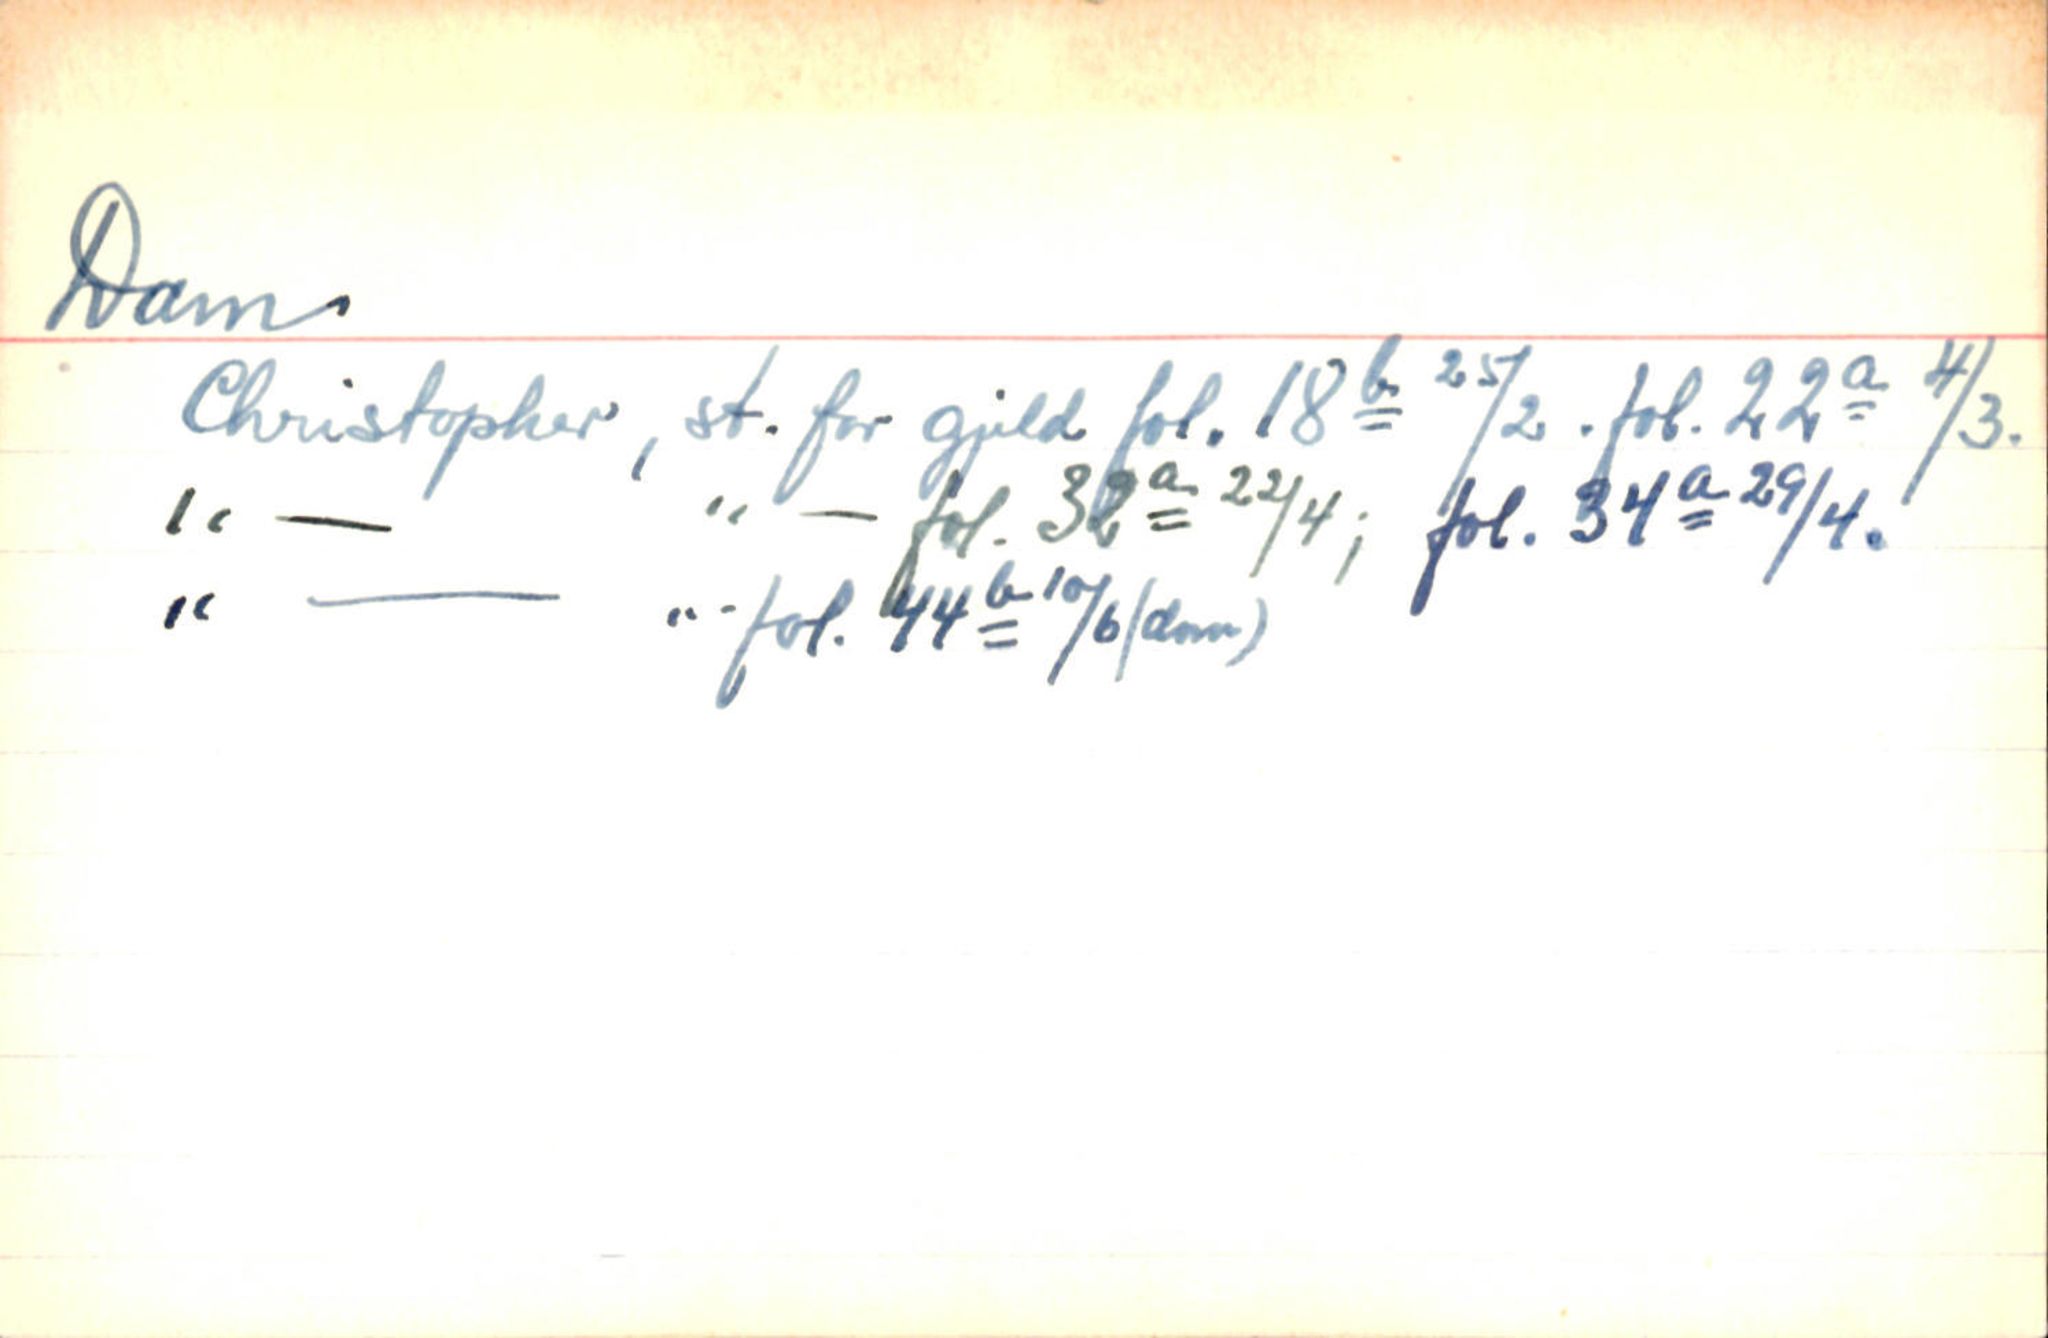 Dam
Christopher, st. for gjeld fol. 18b 25/2. fol. 22a 4/3.
" — " — fol. 32a 22/4; fol. 34a 29/4.
" — " - fol. 44b 10/6 (dom)